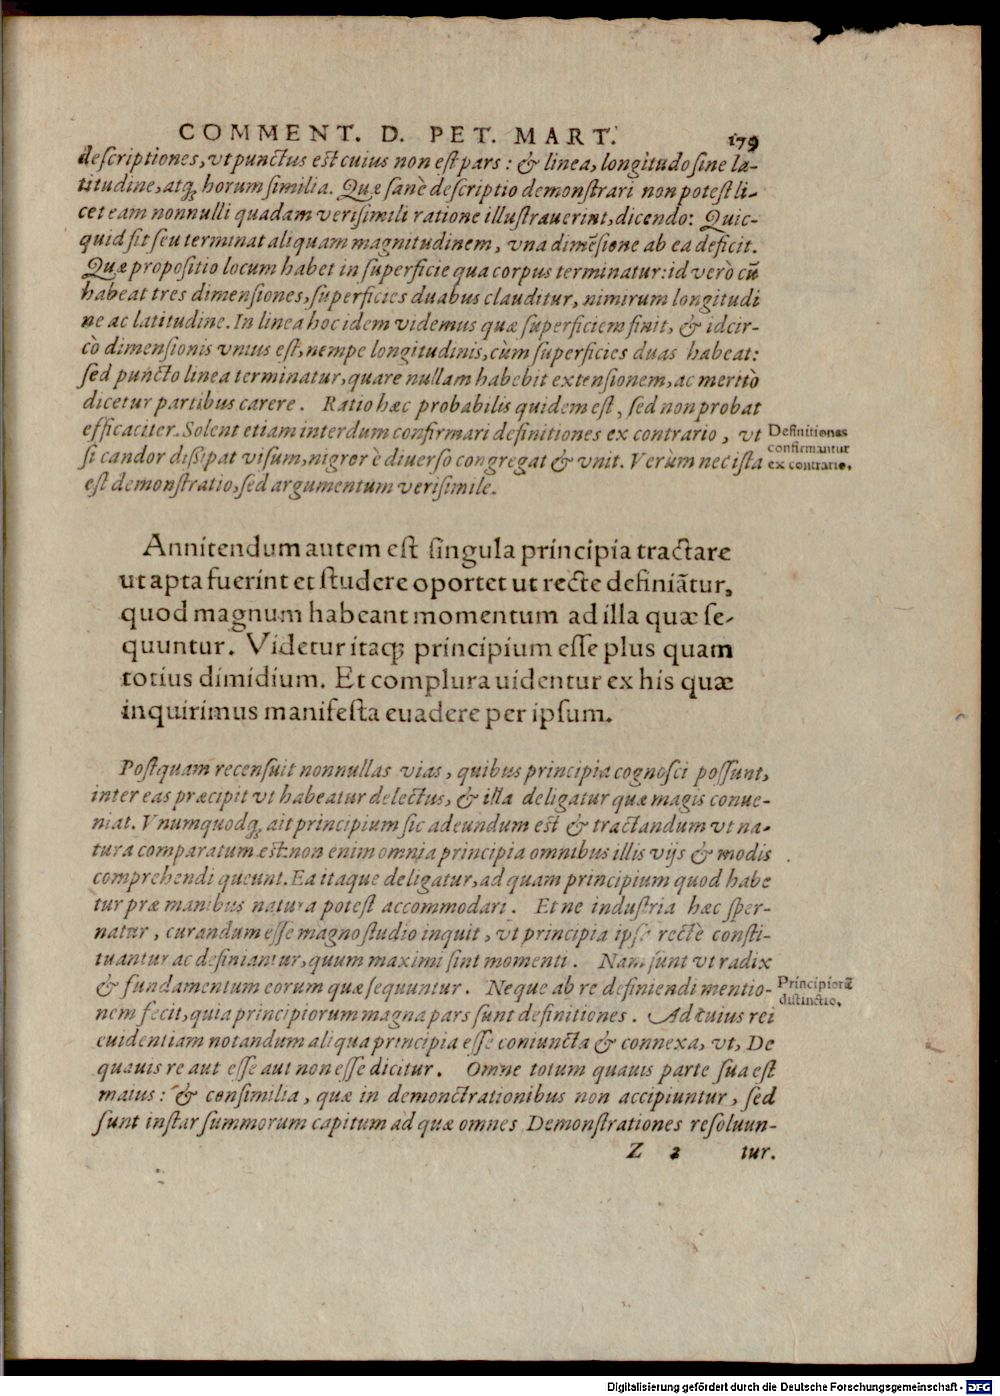 COMMENT. D. PET. MART. 179
descriptiones, vt punctus est cuius non est pars: & linea, longitudo sine la-
titudine, atq; horum similia. Quæ sanè descriptio demonstrari non potest li-
cet eam nonnulli quadam verisimili ratione illustrauerint, dicendo: Quic-
quid sit seu terminat aliquam magnitudinem, vna dimẽsione ab ea deficit.
Quæ propositio locum habet in superficie qua corpus terminatur: id verò cũ
habeat tres dimensiones, superficies duabus clauditur, nimirum longitudi
ne ac latitudine. In linea hoc idem videmus quæ superficiem finit, & idcir-
cò dimensionis vnius est, nempe longitudinis, cùm superficies duas habeat:
sed puncto linea terminatur, quare nullam habebit extensionem, ac meritò
dicetur partibus carere. Ratio hæc probabilis quidem est, sed non probat
efficaciter. Solent etiam interdum confirmari definitiones ex contrario, vt
si candor dissipat visum, nigror è diuerso congregat & vnit. Verùm nec ista
est demonstratio, sed argumentum verisimile.
Definitiones
confirmantur
ex contrario.
Annitendum autem est singula principia tractare
ut apta fuerint et studere oportet ut recte definiãtur,
quod magnum habeant momentum ad illa quæ se-
quuntur. Videtur itaq; principium esse plus quam
totius dimidium. Et complura uidentur ex his quæ
inquirimus manifesta euadere per ipsum.
Postquam recensuit nonnullas vias, quibus principia cognosci possunt,
inter eas præcipit vt habeatur delectus, & illa deligatur quæ magis conue-
niat. Vnumquodq; ait principium sic adeundum est & tractandum vt na-
tura comparatum est: non enim omnia principia omnibus illis vijs & modis
comprehendi queunt. Ea itaque deligatur, ad quam principium quod habe
tur præ manibus natura potest accommodari. Et ne industria hæc sper-
natur, curandum esse magno studio inquit, vt principia ipsa rectè consti-
tuantur ac definiantur, quum maximi sint momenti. Nam sunt vt radix
& fundamentum eorum quæ sequuntur. Neque ab re definiendi mentio-
nem fecit, quia principiorum magna pars sunt definitiones. Ad cuius rei
euidentiam notandum aliqua principia esse coniuncta & connexa, vt, De
quauis re aut esse aut non esse dicitur. Omne totum quauis parte sua est
maius: & consimilia, quæ in demonctrationibus non accipiuntur, sed
sunt instar summorum capitum ad quæ omnes Demonstrationes resoluun-
Principiorũ
distinctio.
Z 2 tur.
Digitalisierung gefördert durch die Deutsche Forschungsgemeinschaft - DFG